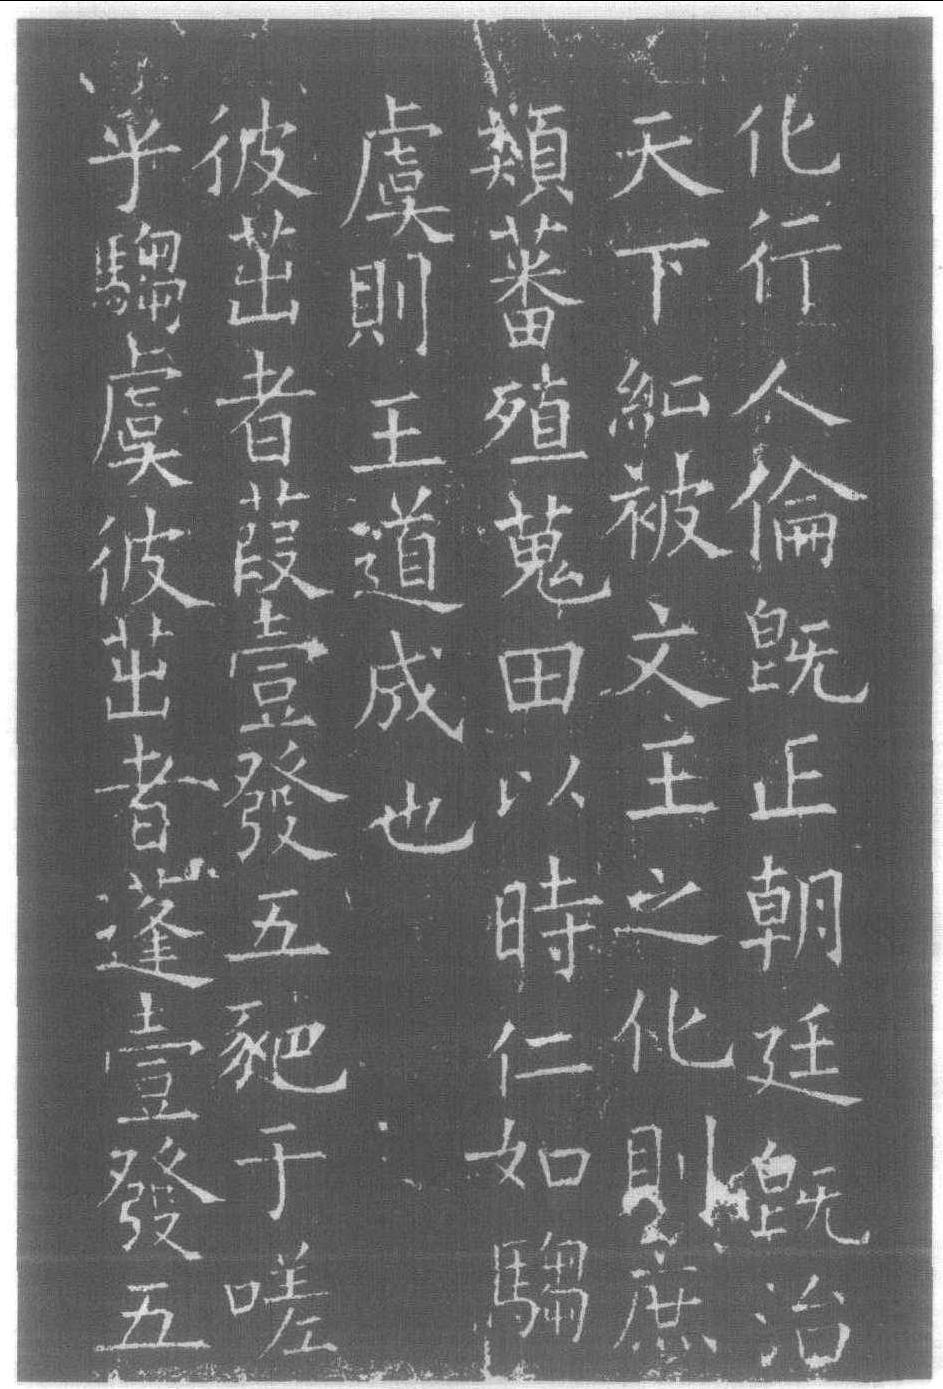 化行人倫既正朝廷既治
天下純被文王之化則庶
類蕃殖蒐田以時仁如騶
虞則王道成也
彼茁者葭壹發五豝于嗟
乎騶虞彼茁者蓬壹發五